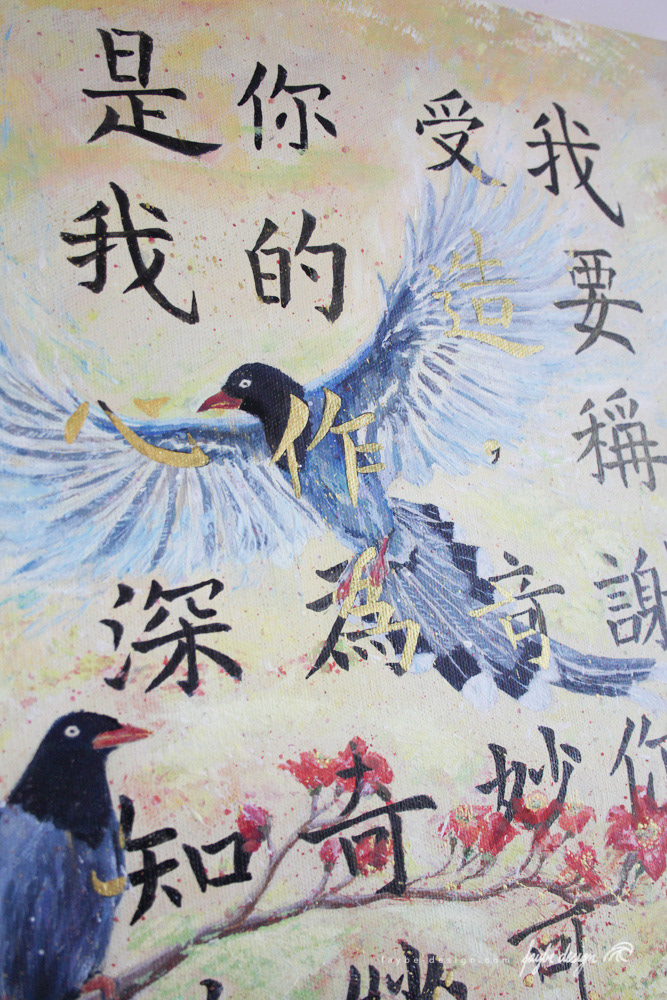 我要稱謝你
受造，奇妙可
你的作為奇妙
是我心深知
faybe-design.com
faybe design